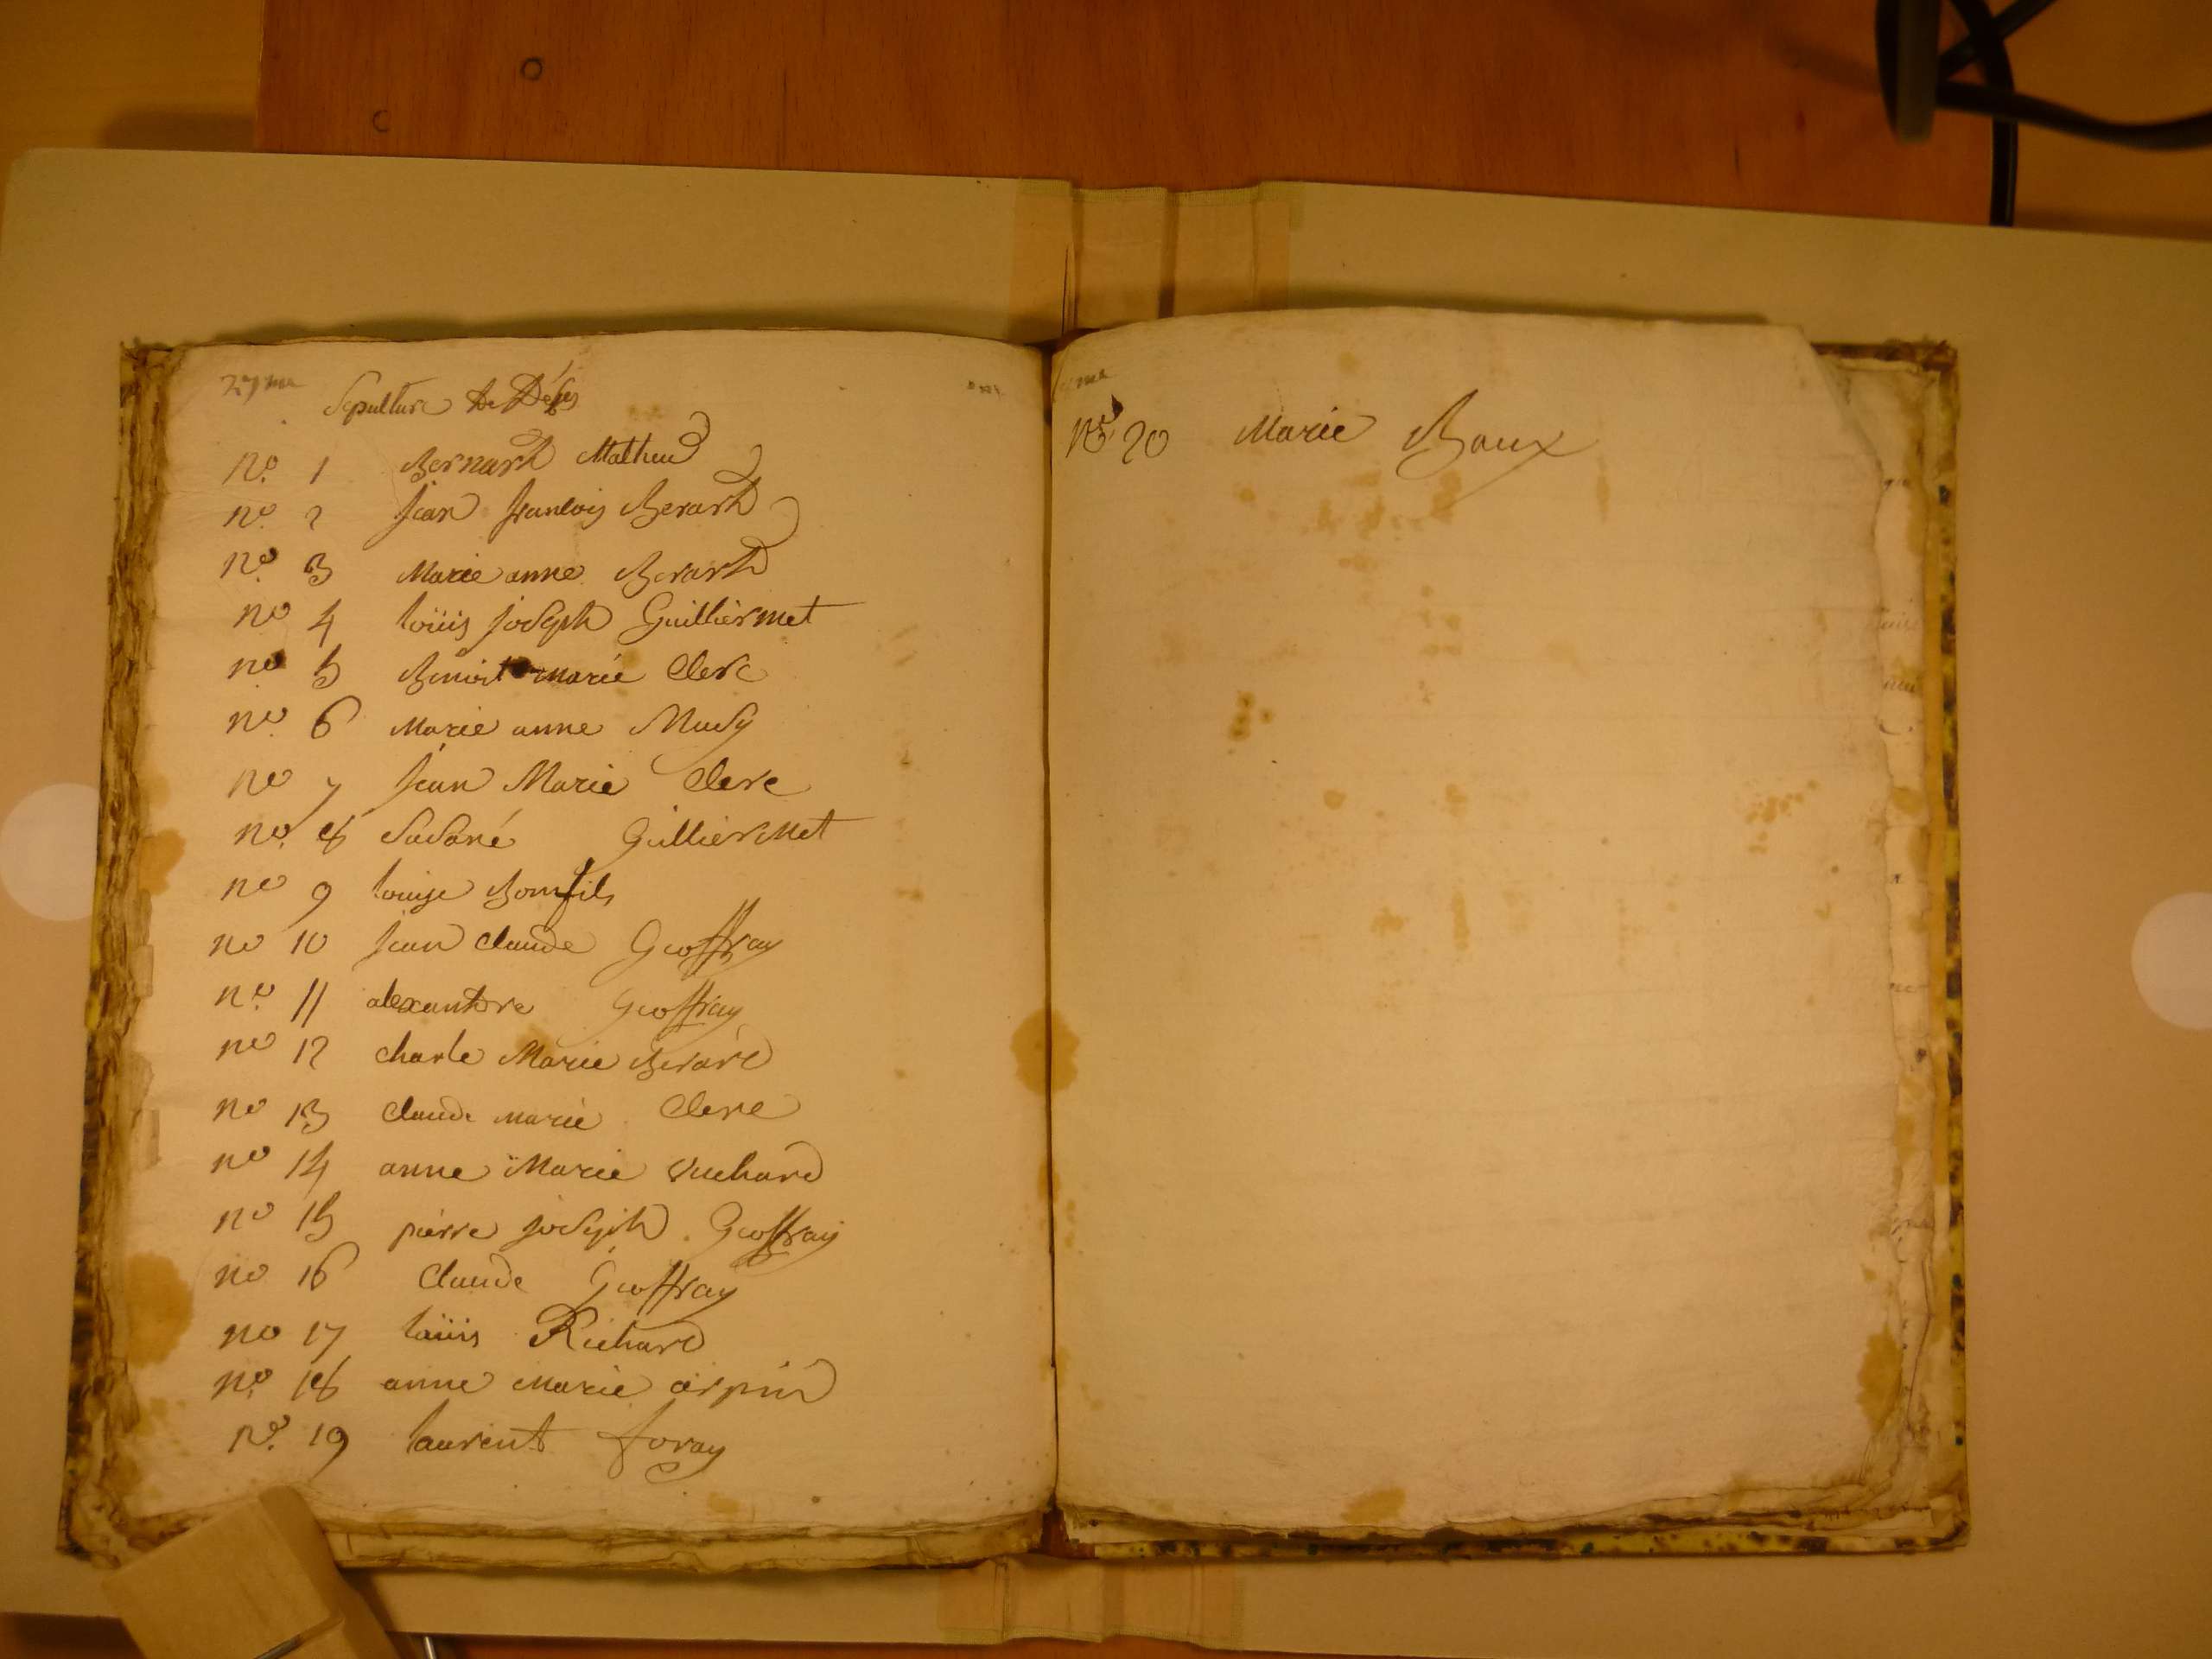 Sepulture De Décès
no. 1 Bernard Mathieu
no. 2 jean francois Berard
no. 3 Marie anne Berard
no 4 loüis joseph Guilliermet
no 5 Benoit marie Clerc
no. 6 Marie anne Musy
no 7 jean Marie Clerc
no. 8 Susané Gulliermet
no 9 louise Bomfils
no 10 jean claude Geoffray
no. 11 alexandre Geoffray
no 12 charle Marie Berard
no 13 claude marie Clerc
no 14 anne Marie vuchard
no 15 pierre joseph Geoffray
no 16 Claude Geoffray
no 17 loüis Richard
no. 18 anne Marie arpin
no. 19 laurent foray
no 20 Marie Baux